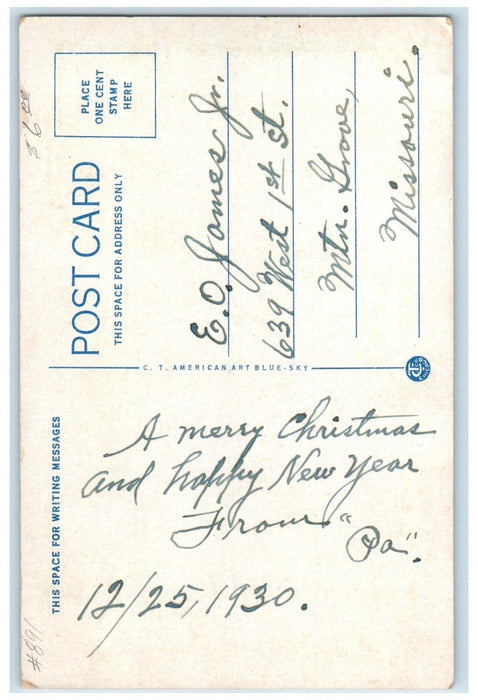 THIS SPACE FOR WRITING MESSAGES
A merry Christmas
and happy New Year
From "
Pa".
12/25, 1930.
#891
C. T. AMERICAN ART BLUE-SKY
POST CARD
THIS SPACE FOR ADDRESS ONLY
PLACE
ONE CENT
STAMP
HERE
E.O. James Jr.
639 West 1st St.
Mtn. Grove,
Missouri.